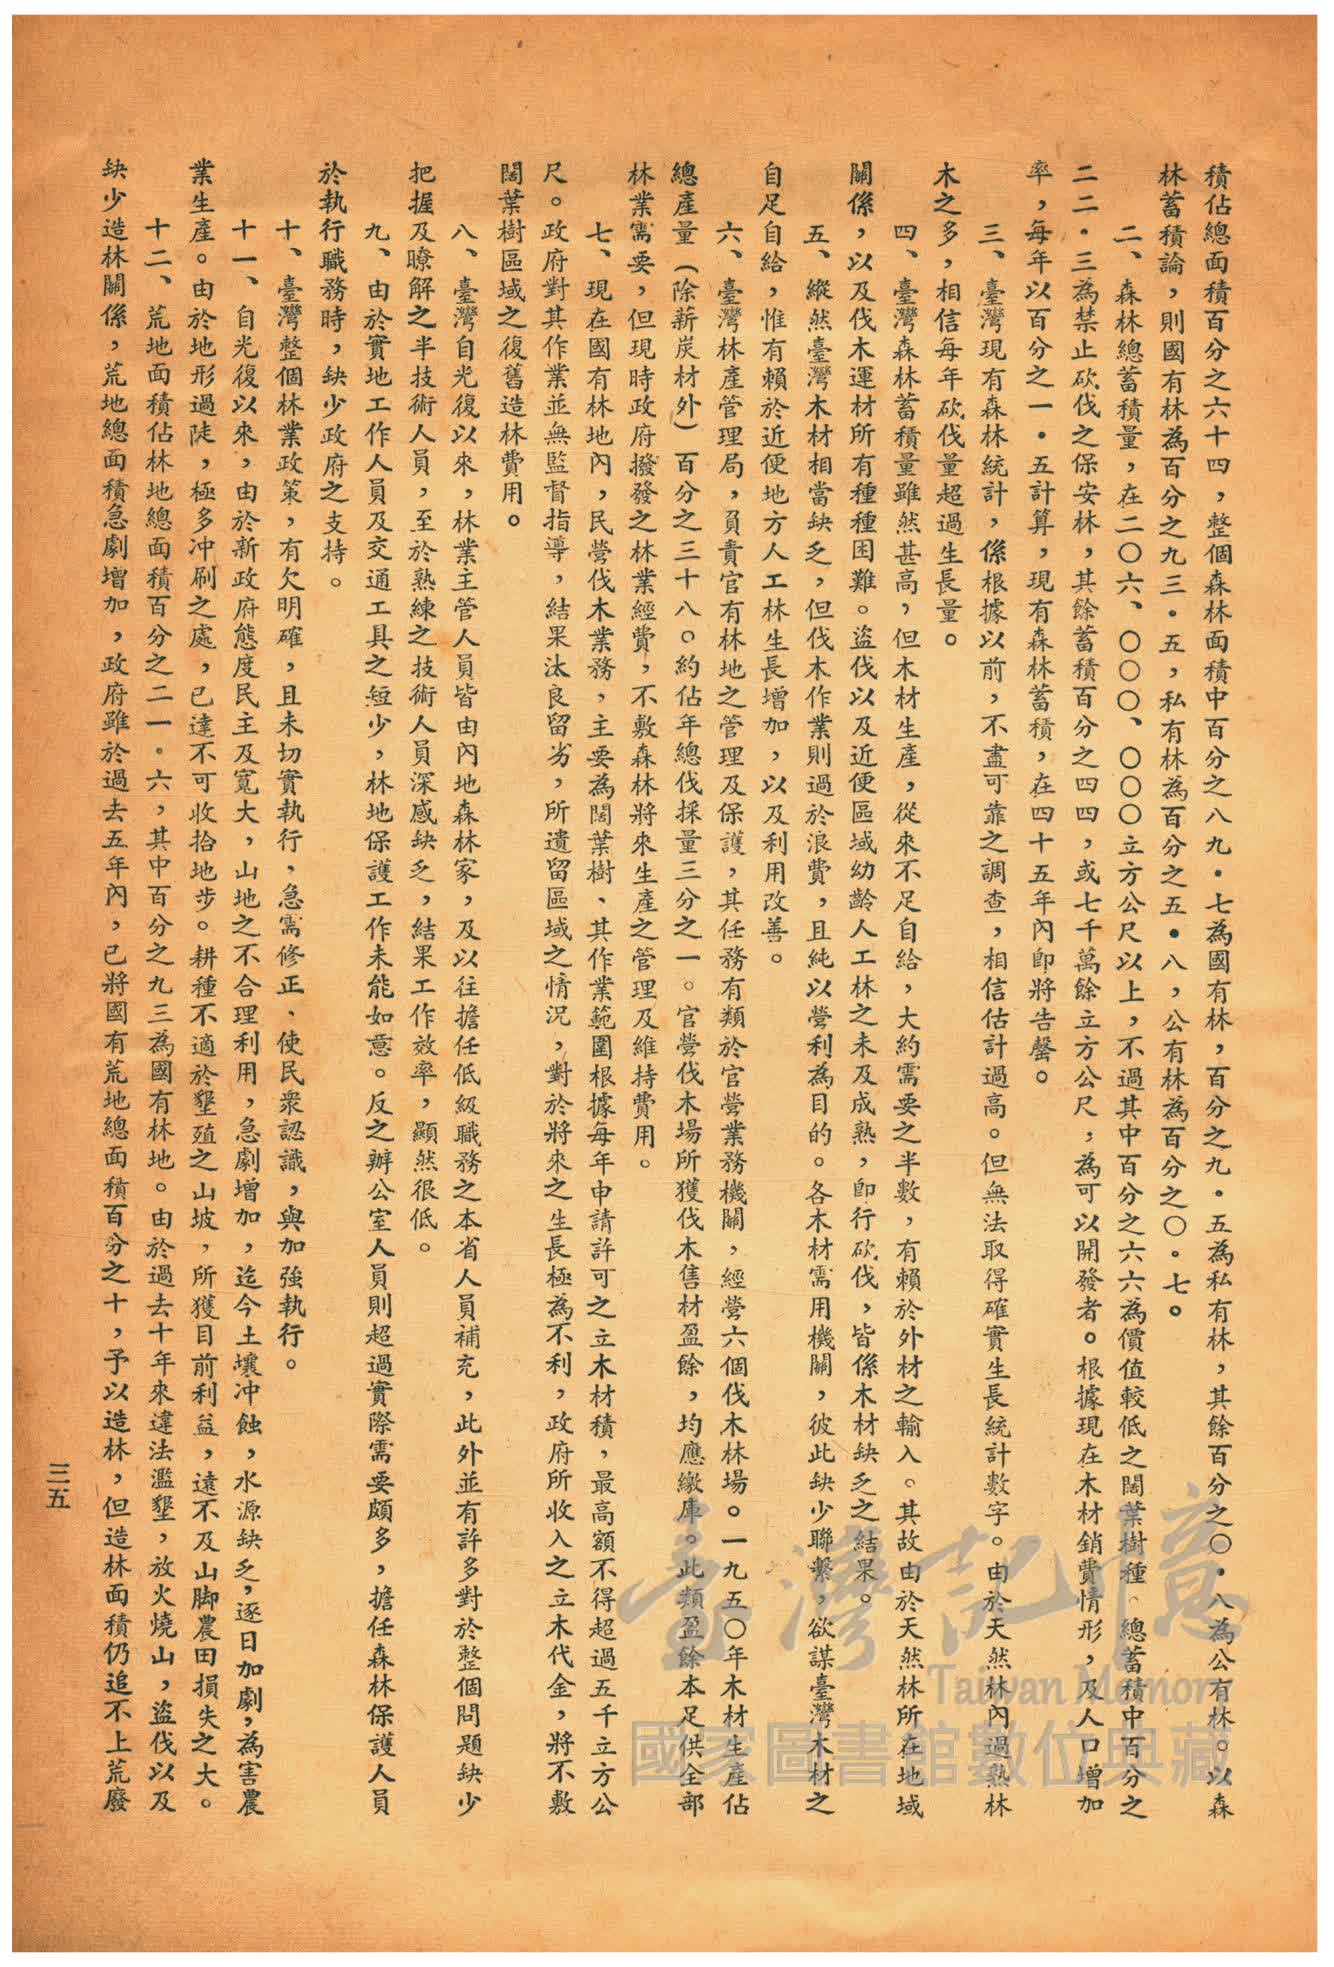 積佔總面積百分之六十四，整個森林面積中百分之八九・七為國有林，百分之九・五為私有林，其餘百分之〇・八為公有林。以森
林蓄積論，則國有林為百分之九三・五，私有林為百分之五・八，公有林為百分之〇・七。
二、森林總蓄積量，在二〇六、〇〇〇、〇〇〇立方公尺以上，不過其中百分之六六為價值較低之闊葉樹種。總蓄積中百分之
二二・三為禁止砍伐之保安林，其餘蓄積百分之四四，或七千萬餘立方公尺，為可以開發者。根據現在木材銷費情形，及人口增加
率，每年以百分之一・五計算，現有森林蓄積，在四十五年內即將告罄。
三、臺灣現有森林統計，係根據以前，不盡可靠之調查，相信估計過高。但無法取得確實生長統計數字。由於天然林內過熟林
木之多，相信每年砍伐量超過生長量。
四、臺灣森林蓄積量雖然甚高，但木材生產，從來不足自給，大約需要之半數，有賴於外材之輸入。其故由於天然林所在地域
關係，以及伐木運材所有種種困難。盜伐以及近便區域幼齡人工林之未及成熟，即行砍伐，皆係木材缺乏之結果。
五、縱然臺灣木材相當缺乏，但伐木作業則過於浪費，且純以營利為目的。各木材需用機關，彼此缺少聯繫，欲謀臺灣木材之
自足自給，惟有賴於近便地方人工林生長增加，以及利用改善。
六、臺灣林產管理局，負責官有林地之管理及保護，其任務有類於官營業務機關，經營六個伐木林場。一九五〇年木材生產佔
總產量（除薪炭材外）百分之三十八。約佔年總伐採量三分之一。官營伐木場所獲伐木售材盈餘，均應繳庫。此類盈餘本足供全部
林業需要，但現時政府撥發之林業經費，不敷森林將來生產之管理及維持費用。
七、現在國有林地內，民營伐木業務，主要為闊葉樹、其作業範圍根據每年申請許可之立木材積，最高額不得超過五千立方公
尺。政府對其作業並無監督指導，結果汰良留劣，所遺留區域之情況，對於將來之生長極為不利，政府所收入之立木代金，將不敷
闊葉樹區域之復舊造林費用。
八、臺灣自光復以來，林業主管人員皆由內地森林家，及以往擔任低級職務之本省人員補充，此外並有許多對於整個問題缺少
把握及瞭解之半技術人員，至於熟練之技術人員深感缺乏，結果工作效率，顯然很低。
九、由於實地工作人員及交通工具之短少，林地保護工作未能如意。反之辦公室人員則超過實際需要頗多，擔任森林保護人員
於執行職務時，缺少政府之支持。
十、臺灣整個林業政策，有欠明確，且未切實執行，急需修正、使民衆認識，與加強執行。
十一、自光復以來，由於新政府態度民主及寬大，山地之不合理利用，急劇增加，迄今土壤冲蝕，水源缺乏，逐日加劇，為害農
業生產。由於地形過陡，極多冲刷之處，已達不可收拾地步。耕種不適於墾殖之山坡，所獲目前利益，遠不及山脚農田損失之大。
十二、荒地面積佔林地總面積百分之二一・六，其中百分之九三為國有林地。由於過去十年來違法濫墾，放火燒山，盜伐以及
缺少造林關係，荒地總面積急劇增加，政府雖於過去五年內，已將國有荒地總面積百分之十，予以造林，但造林面積仍追不上荒廢
三五
臺灣記憶
Taiwan Memory
國家圖書館數位典藏